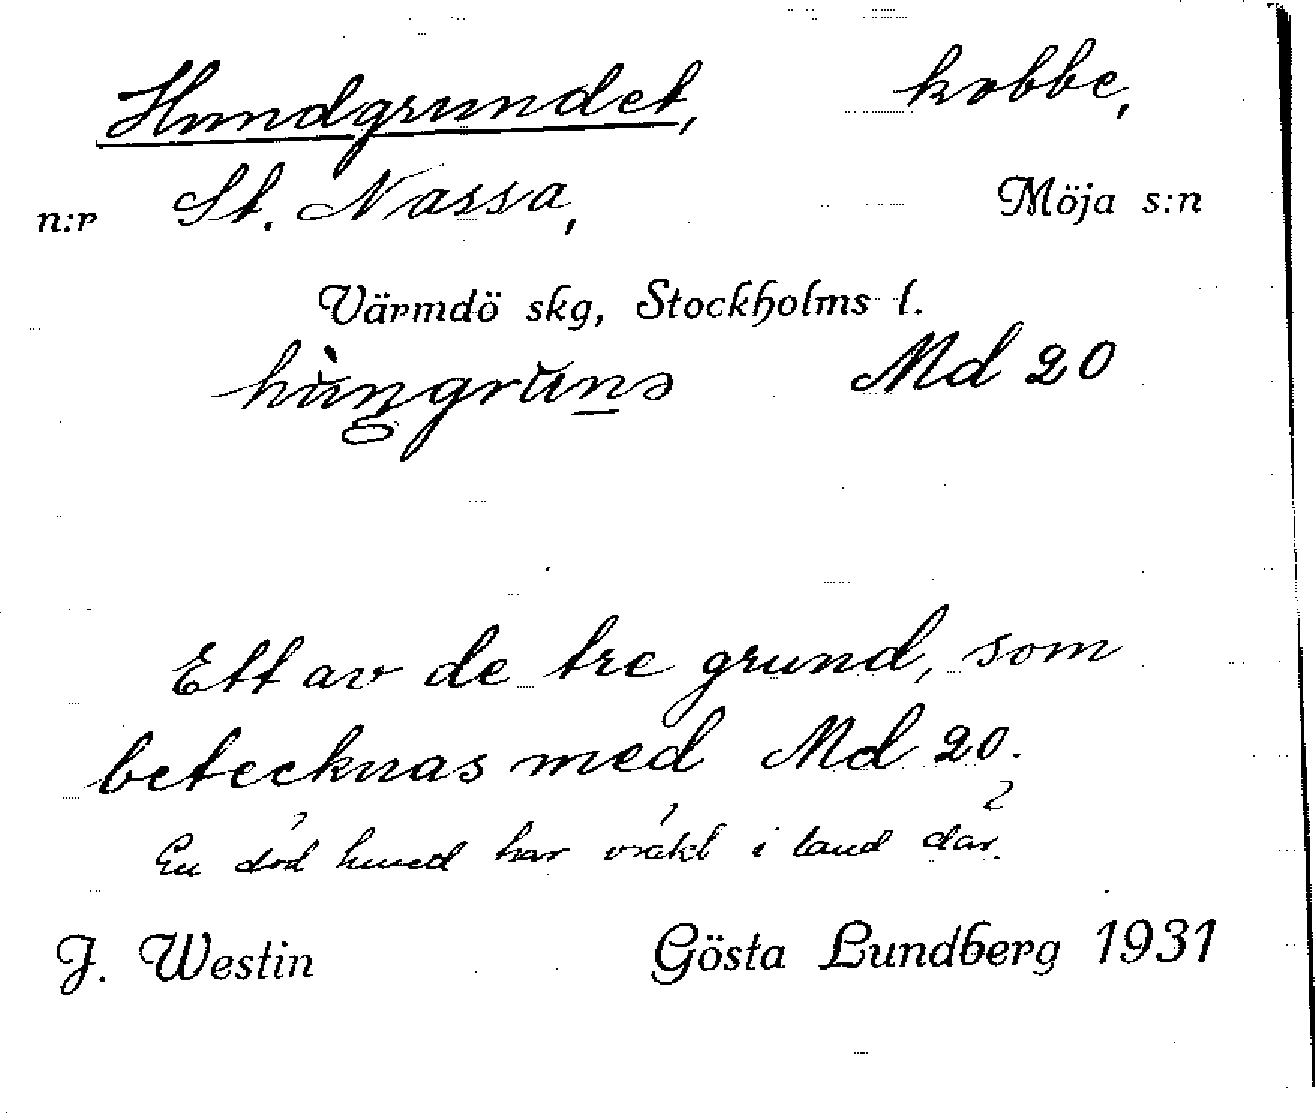 Hundgrundet, kobbe,
n:r St. Nassa, Möja s:n
Värmdö skg, Stockholms l.
hùngrŭns Md 20
Ett av de tre grund, som
betecknas med Md 20.
En död hund har vräkt i land där.
J. Westin Gösta Lundberg 1931